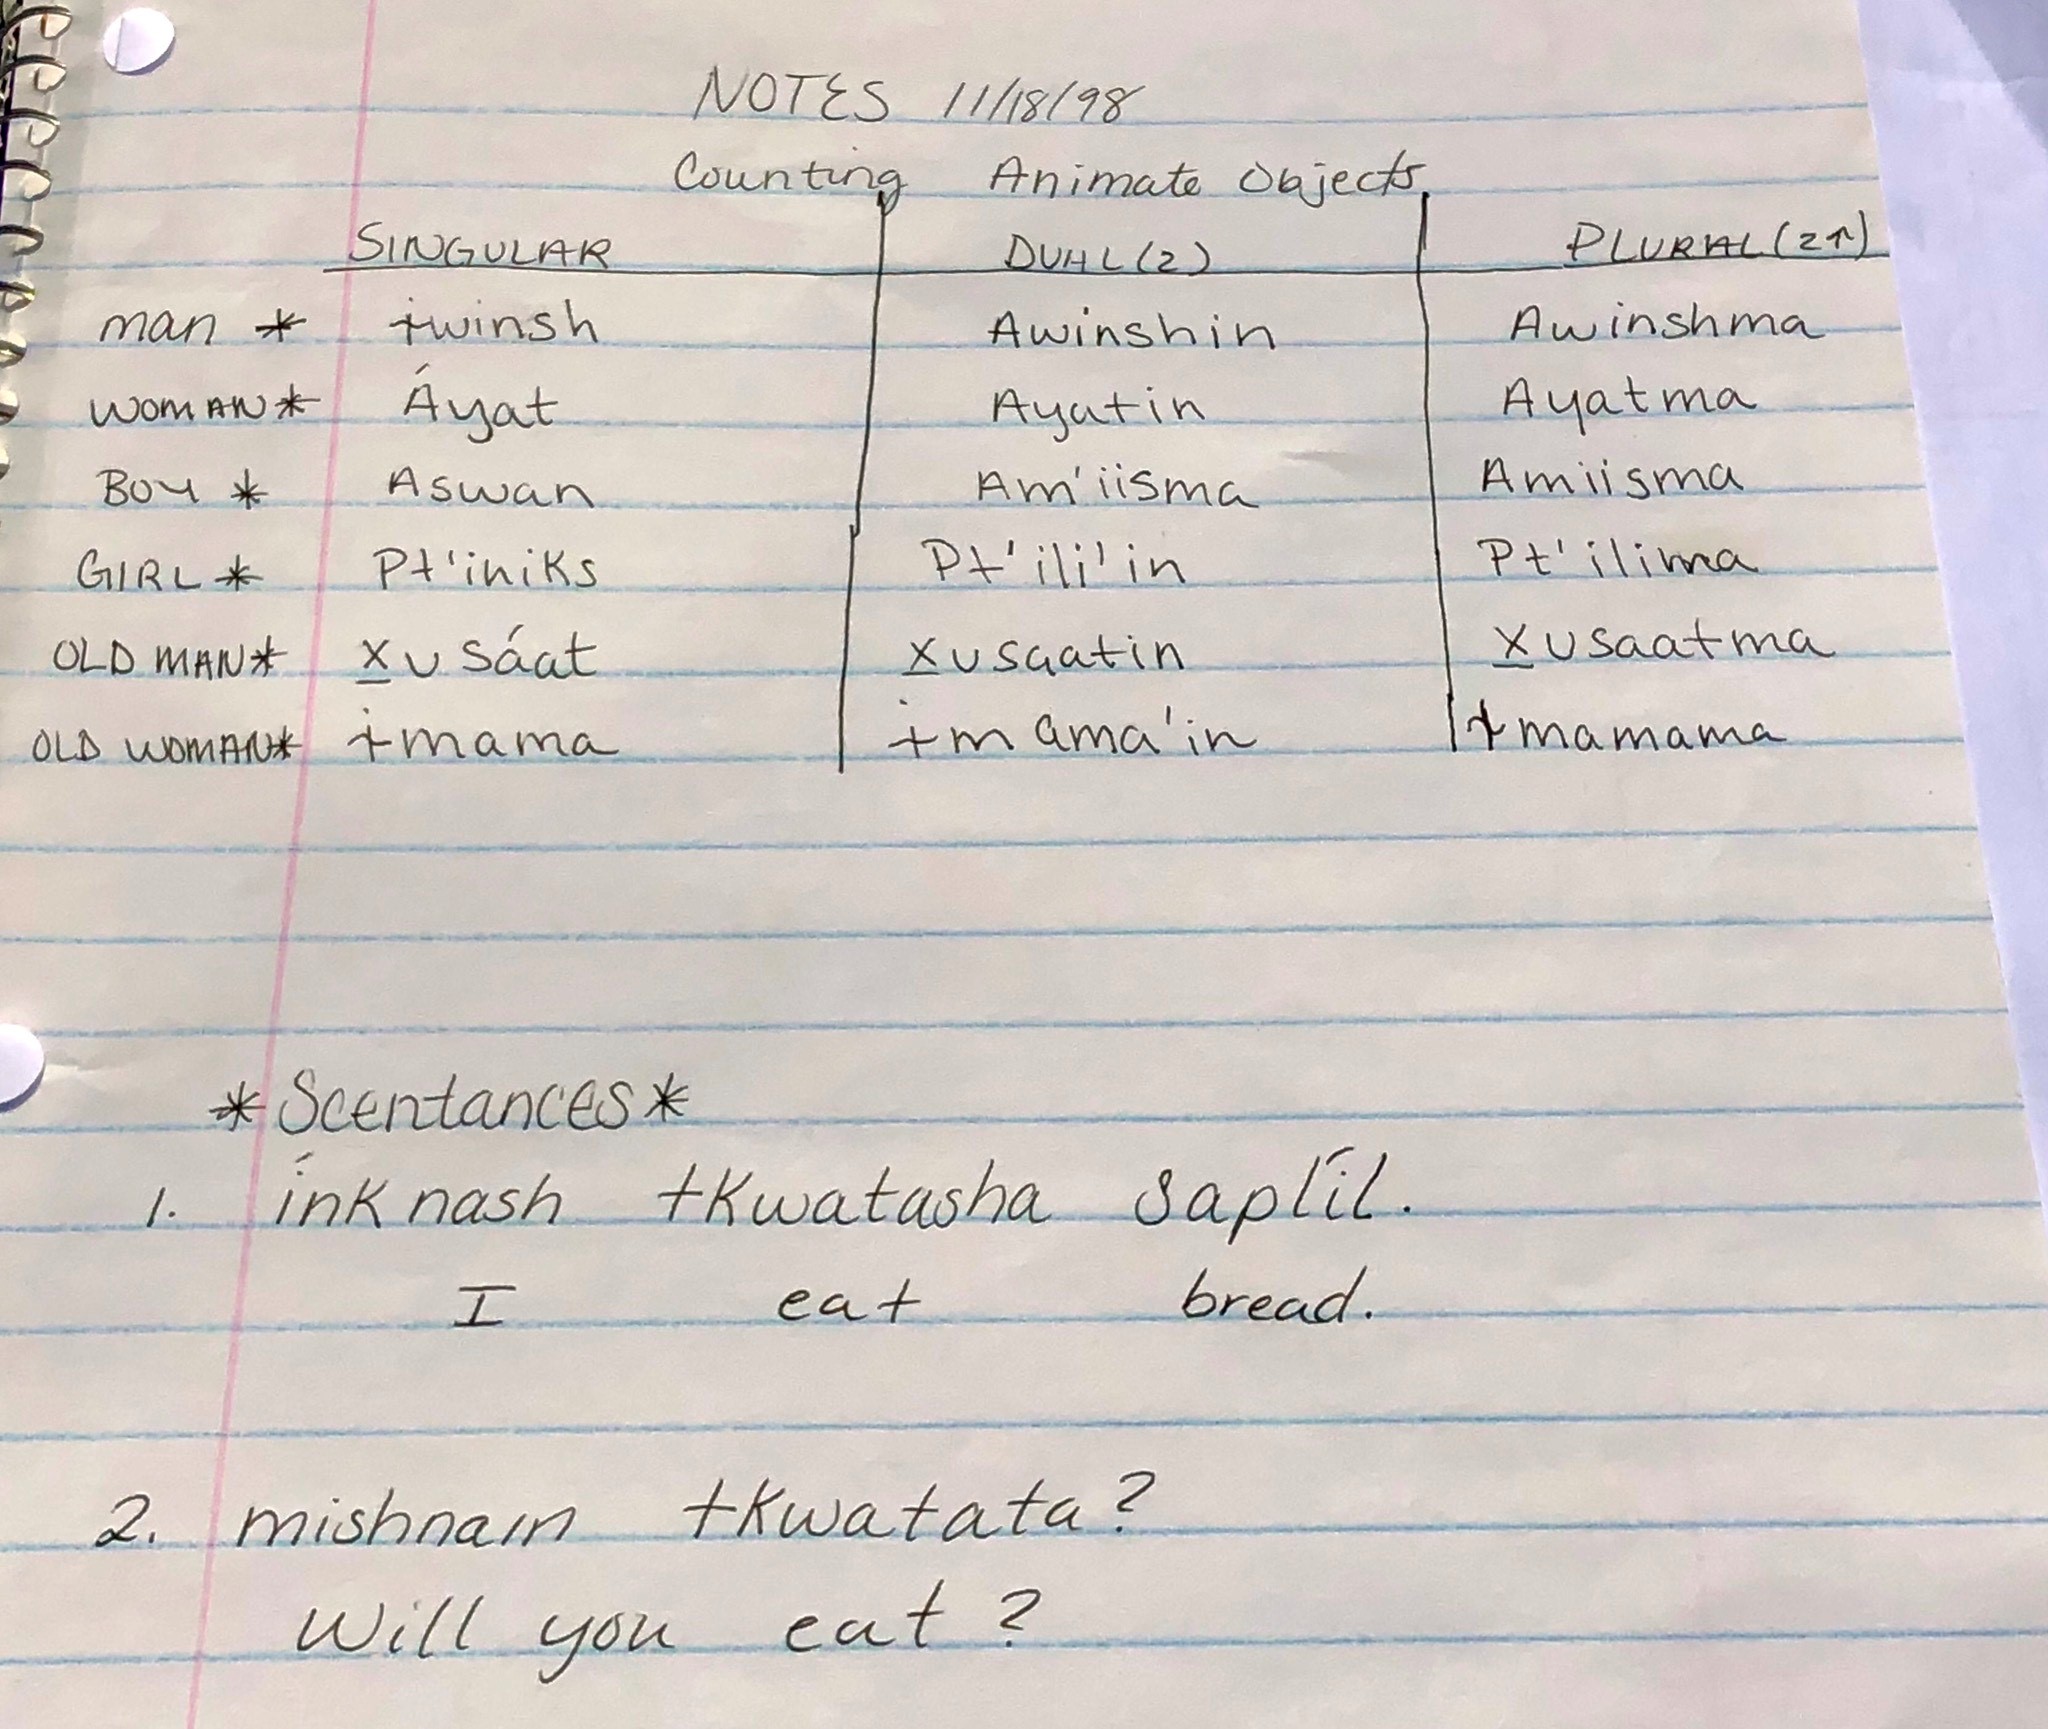 NOTES 11/18/98
Counting Animate Objects
SINGULAR DUAL (2) PLURAL (2↑)
man * ɨwinsh Awinshin Awinshma
WOMAN * Áyat Ayatin Ayatma
BOY * Aswan Am'iisma Amiisma
GIRL * Pt'iniks Pt'ili'in Pt'ilima
OLD MAN * x̲usáat x̲usaatin x̲usaatma
OLD WOMAN * ɨmama ɨmama'in ɨmamama
*Scentances*
1. ínk nash tkwatasha saplíl.
I eat bread.
2. mishnam tkwatata?
Will you eat?